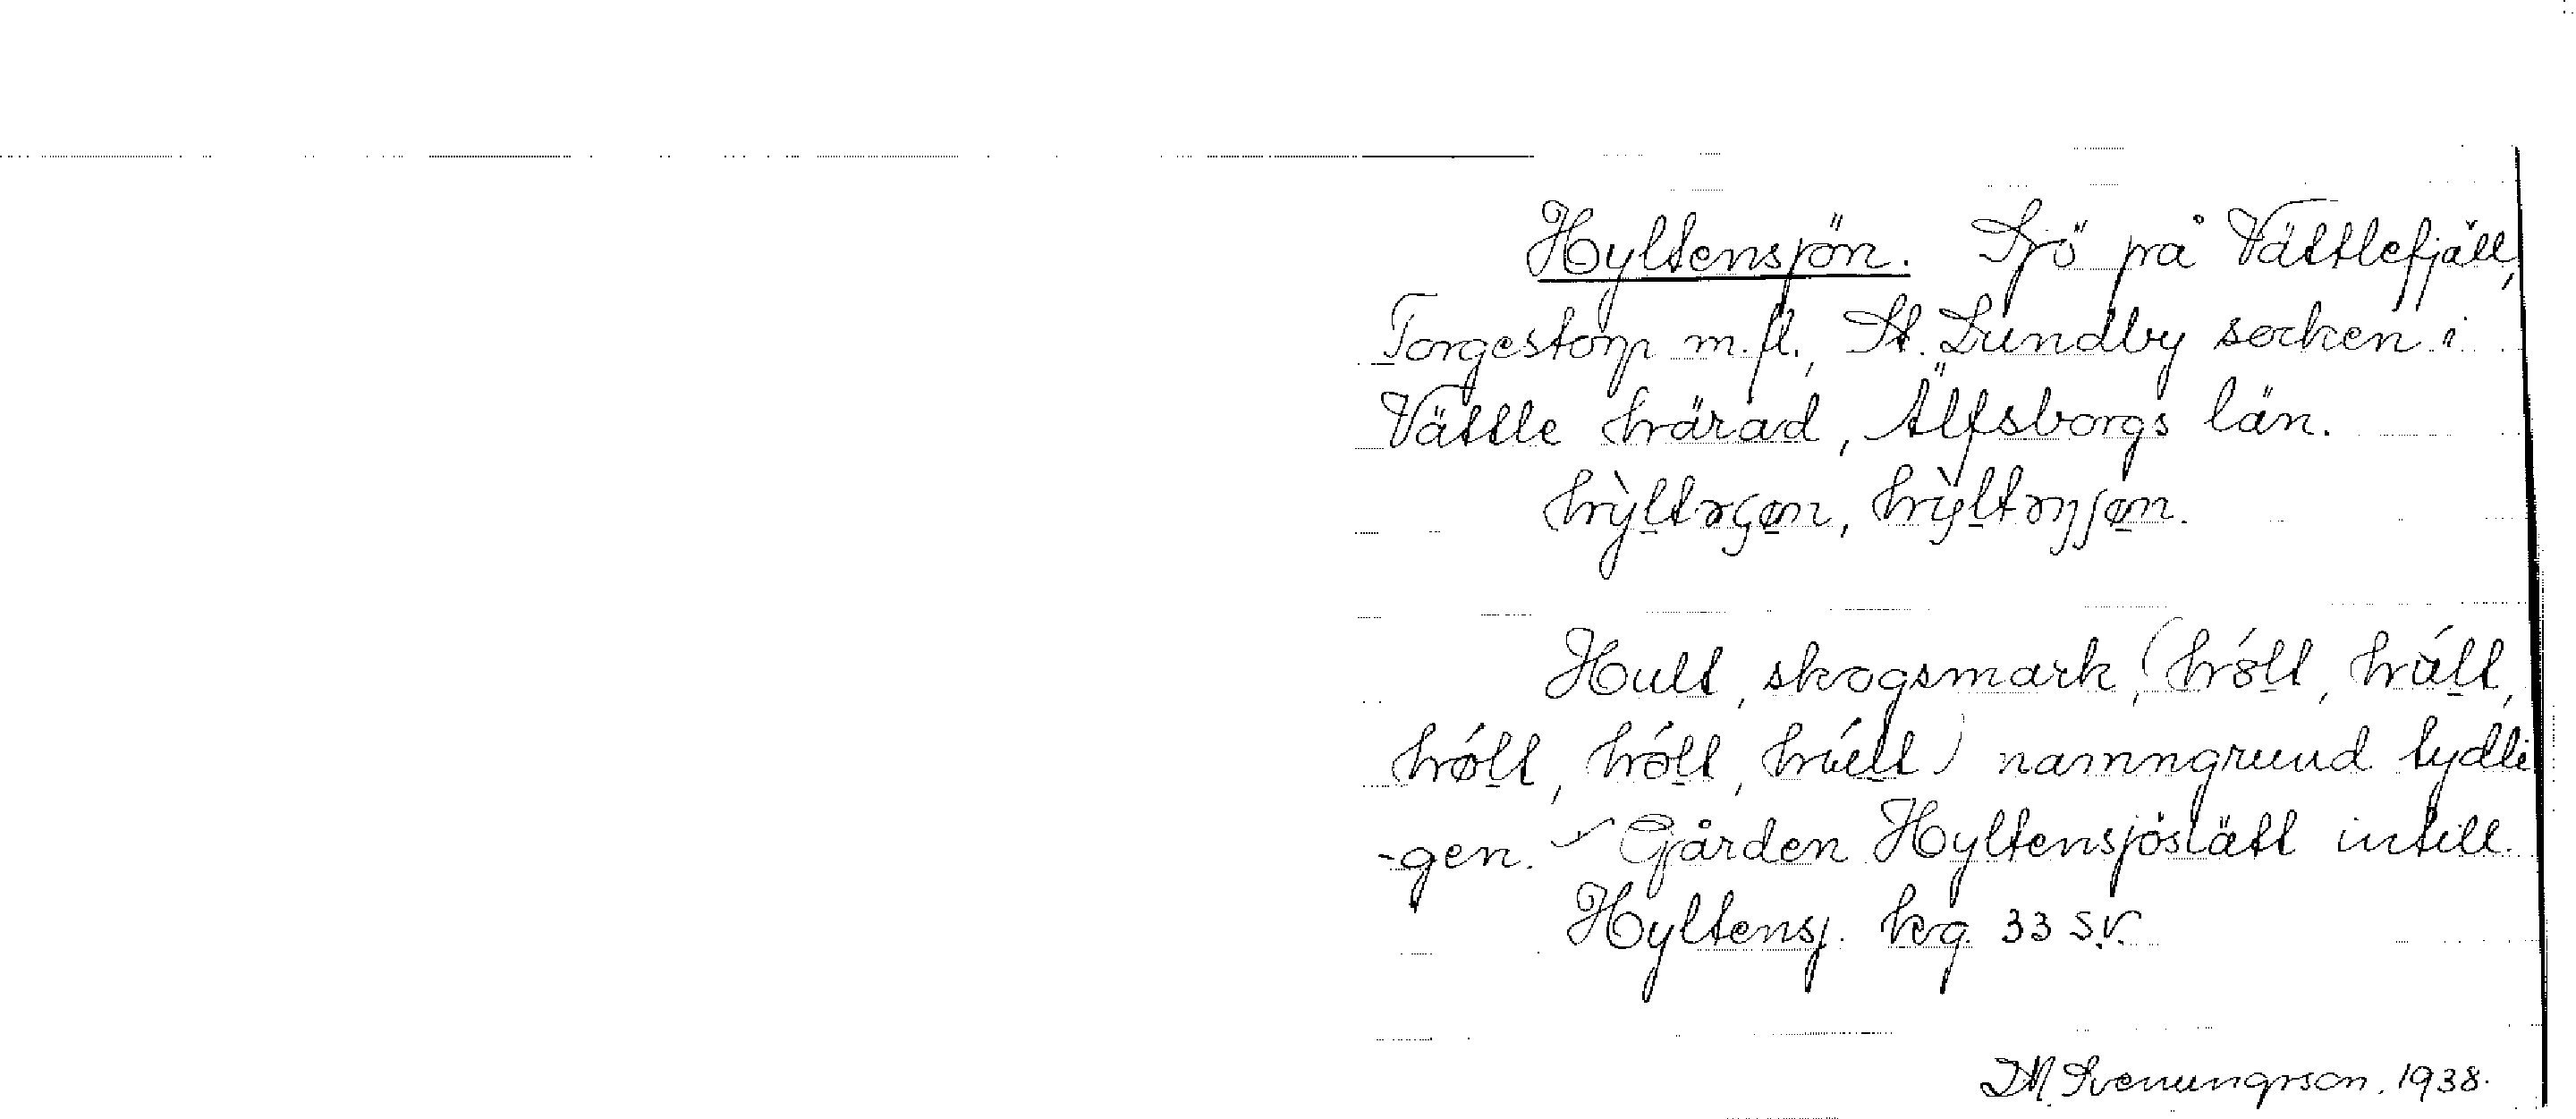 Hyltensjön. Sjö på Vättlefjäll,
Torgestorp m.fl., St. Lundby socken i
Vättle härad, Älfsborgs län.
Hult, skogsmark, (
hólt, namngrund tydli
-gen. Gården Hyltensjöslätt intill.
Hyltensj. kg. 33 s.v.
Svenungsson. 1938.